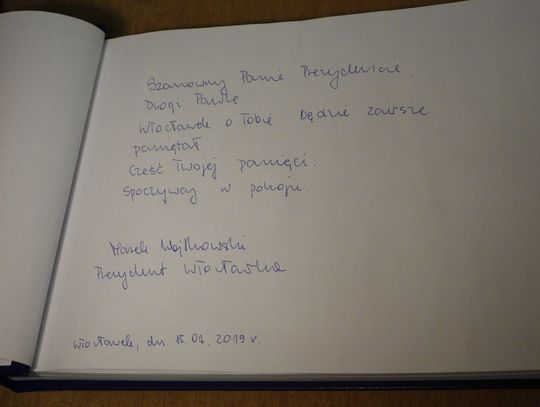 Szanowny Panie Prezydencie.
Drogi Pawle.
Włocławek o Tobie będzie zawsze
pamiętał
Cześć Twojej pamięci.
Spoczywaj w pokoju.
Marek Wojtkowski
Prezydent Włocławka
Włocławek, dn. 15.01.2019 r.